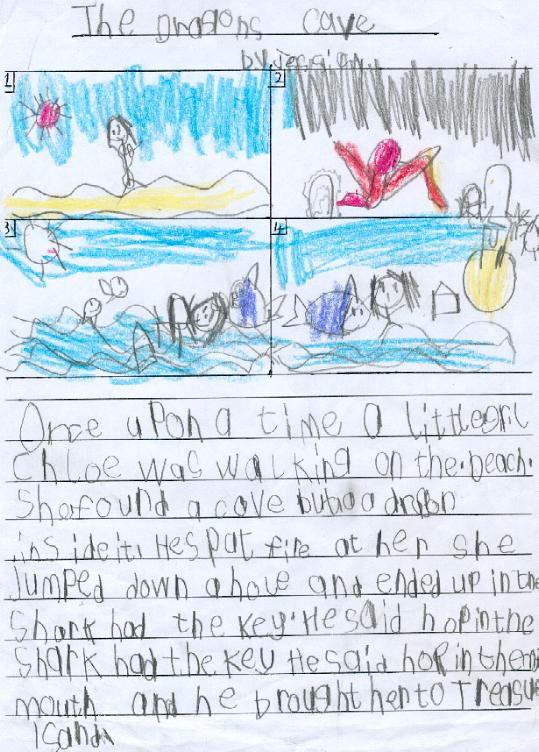 The Dragons cave
by Jessica
1
2
3
4
Once upon a time a little gril
Chloe was walking on the beach.
She found a cave but a a dragon
inside it. He spat fire at her she
Jumped down a hole and ended up in the
Shark had the key. He said hop in the
Shark had the key He said hop in the
mouth and he brought her to Treasue
Island